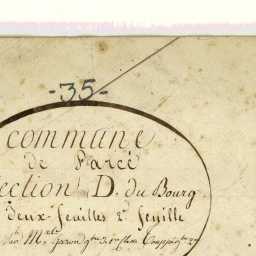 -35-
commune
de Parcé
ection D. du Bourg
deux feuilles 2e feuille